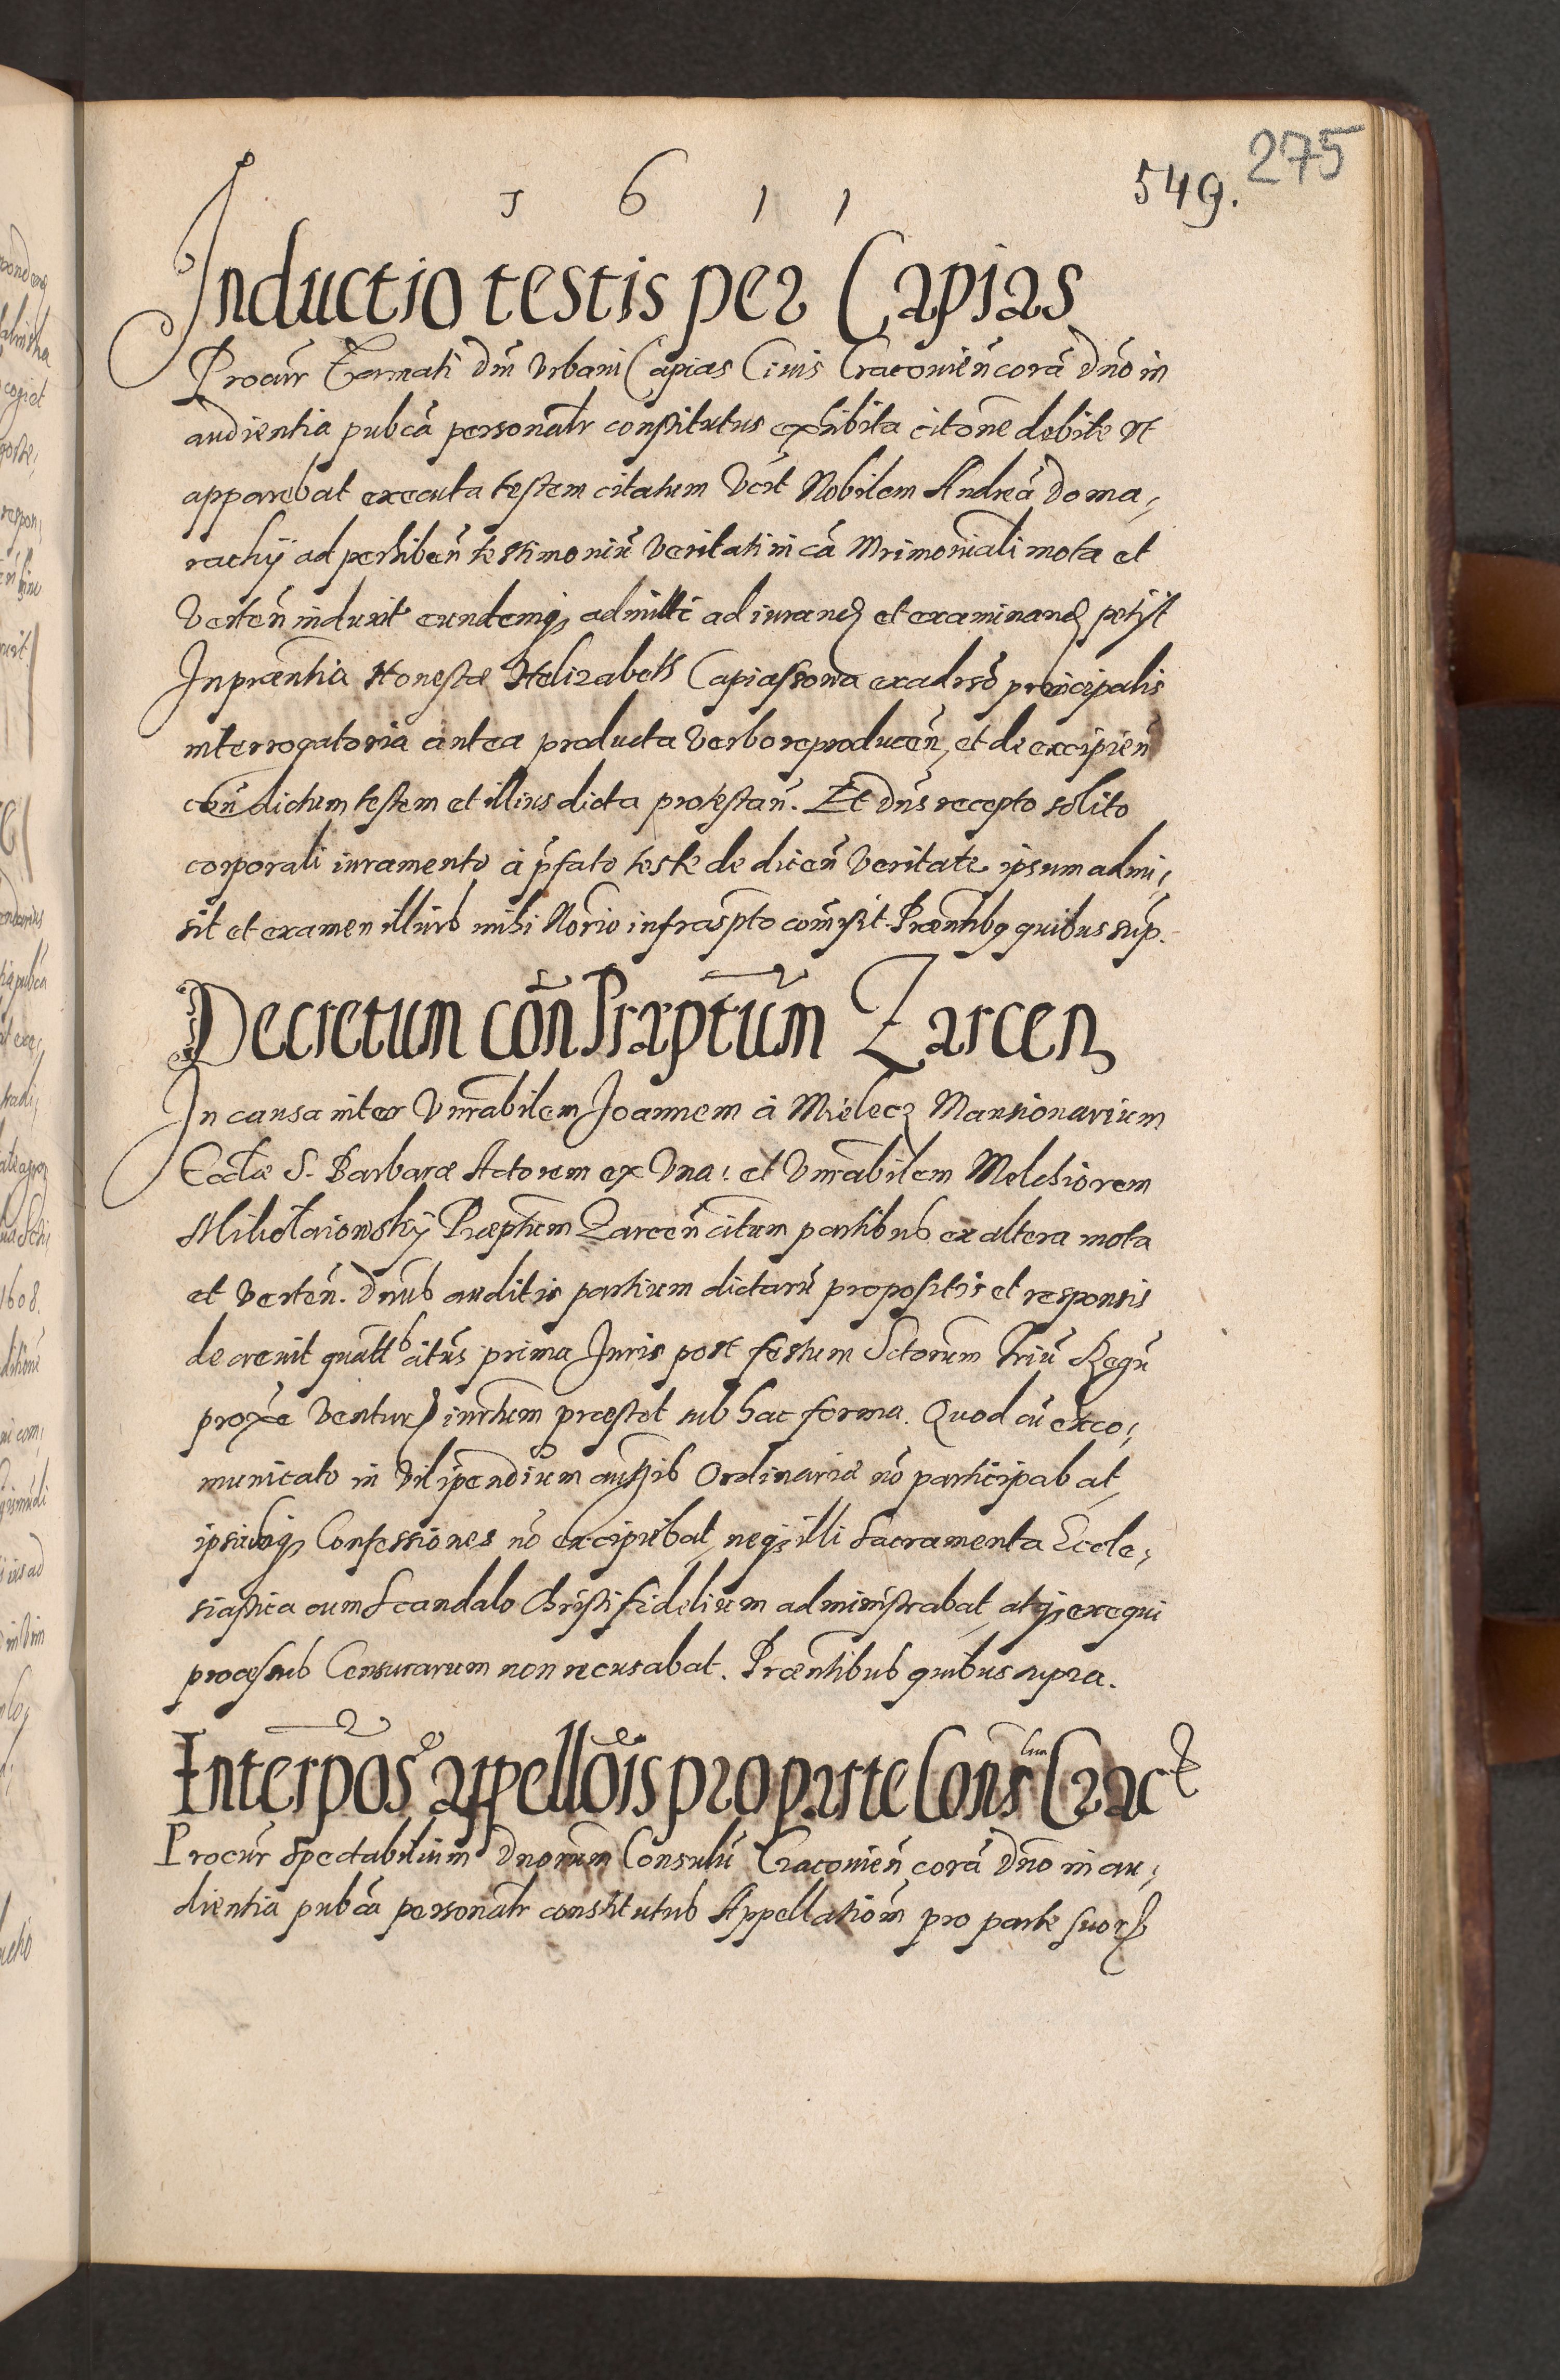 1 6 1 1
549. 275
Inductio testis per Capias
Procur̃ Famati Dni Urbani Capias Civis Cracovień corã Dño in
audientia pubcã personalr constitutus exhibita citone debite ut
apparebat executa testem citatum vcet Nobilem Andreã Doma,
rachij ad perhibeñ testimoniũ veritati in cã Mrimoniali mota et
verteñ induxit eundemq, admitti ad iurand et examinand petijt
In præntia Honestæ Helizabeth Capiaszowa ex adrso principalis
interrogatoria antea producta verbo reproduceñ, et de excipień
con dictum testem et illius dicta protestañ. Et Dñs recepto solito
corporali iuramento à p̃fato teste de diceñ veritate ipsum admi,
sit et examen illius mihi Norio infrascpto comisit. Præntibq quibus sup.
Decretum cõn Præptum Zarcen
In causa inter Vnrabilem Joannem à Mielecz Mansionarium
Eccłæ S. Barbaræ Actorem ex una: et Vnrabilem Melchiorem
Mikołaiowskij Præptum Zarceñ citum partibus ex altera mota
et verteñ. Dnus auditis partium dictarũ propositis et responsis
decrevit quatts citus prima Juris post festum Sctorum Triũ Regũ
proxe ventur iurtum præstet sub hac forma. Quod cũ exco,
municato in vilipendium autis Ordinariæ nõ participabat,
ipsiusq, Confessiones nõ excipiebat, neq, illi Sacramenta Eccle,
siastica cum Scandalo Christi fidelium administrabat, atq, exequi
processus Censurarum non recusabat. Præntibus quibus supra.
Interpos appellõis pro parte Cons lum Crac
Procur̃ Spectabilium Dnorum Consulũ Cracovień corã Dño in au,
dientia pubca personalr constitutus Appellationem pro parte suor